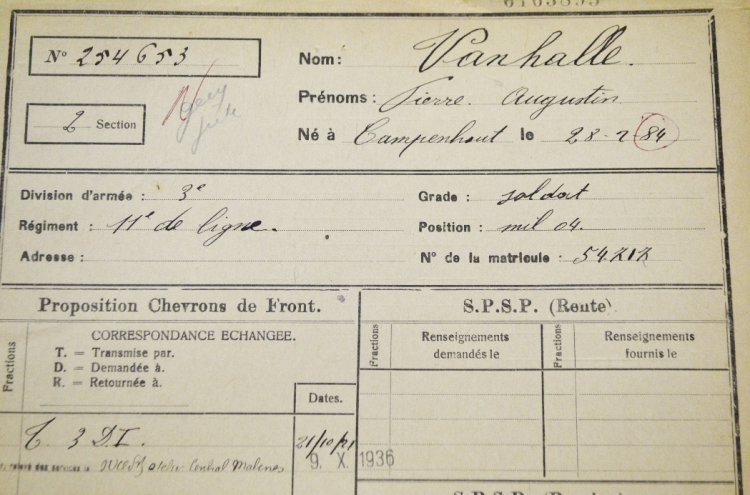 N° 254653
Nom: Vanhalle.
Prénoms: Pierre Augustin
2 Section
Né à Campenhout le 28-2 84
Division d'armée: 3e
Grade: soldat
Régiment: 11e de ligne.
Position: mil 04.
Adresse:
N° de la matricule: 54.212
Proposition Chevrons de Front.
S.P.S.P. (Rente)
Fractions
CORRESPONDANCE ECHANGEE.
T. = Transmise par.
D. = Demandée à.
R. = Retournée à.
Dates.
Fractions
Renseignements demandés le
Fractions
Renseignements fournis le
T. 3 D.I.
21/10/21
Central Malines
9. X. 1936